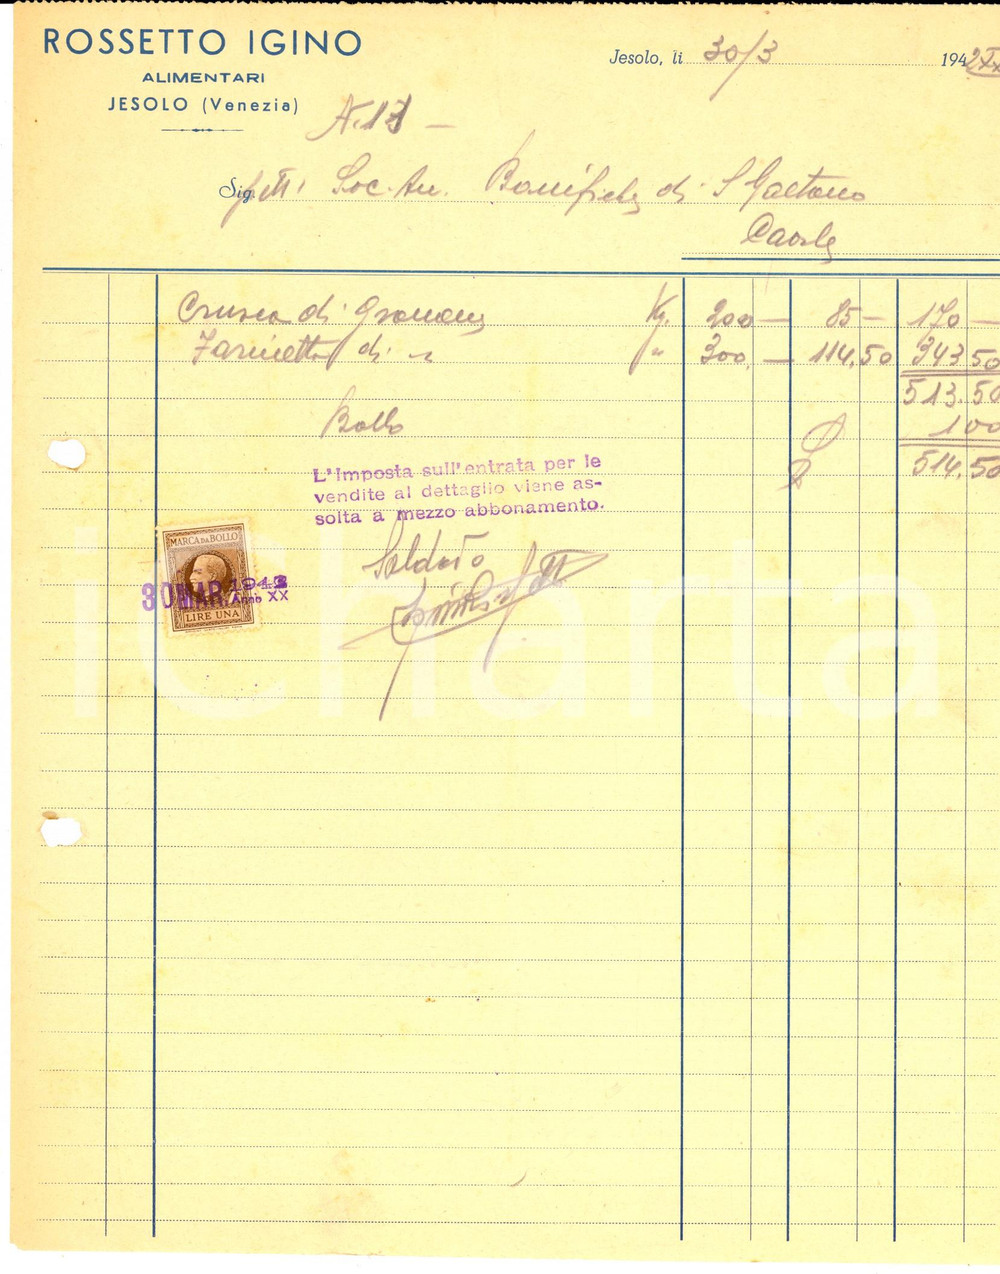 ROSSETTO IGINO
ALIMENTARI
JESOLO (Venezia)
Jesolo, li 30/3 1942 XX
N. 17 —
Sig. Soc. An. Bonifiche di S Gaetano
Caorle
Crusca di Kg. 200 — 85 — 170 —
Farinetta di " " 300 — 114,50 343 50
513.50
Bollo 1 00
514.50
L'Imposta sull'entrata per le
vendite al dettaglio viene as-
solta a mezzo abbonamento.
MARCA DA BOLLO
30 MAR. 1942
Anno XX
LIRE UNA
Saldato
iCharta